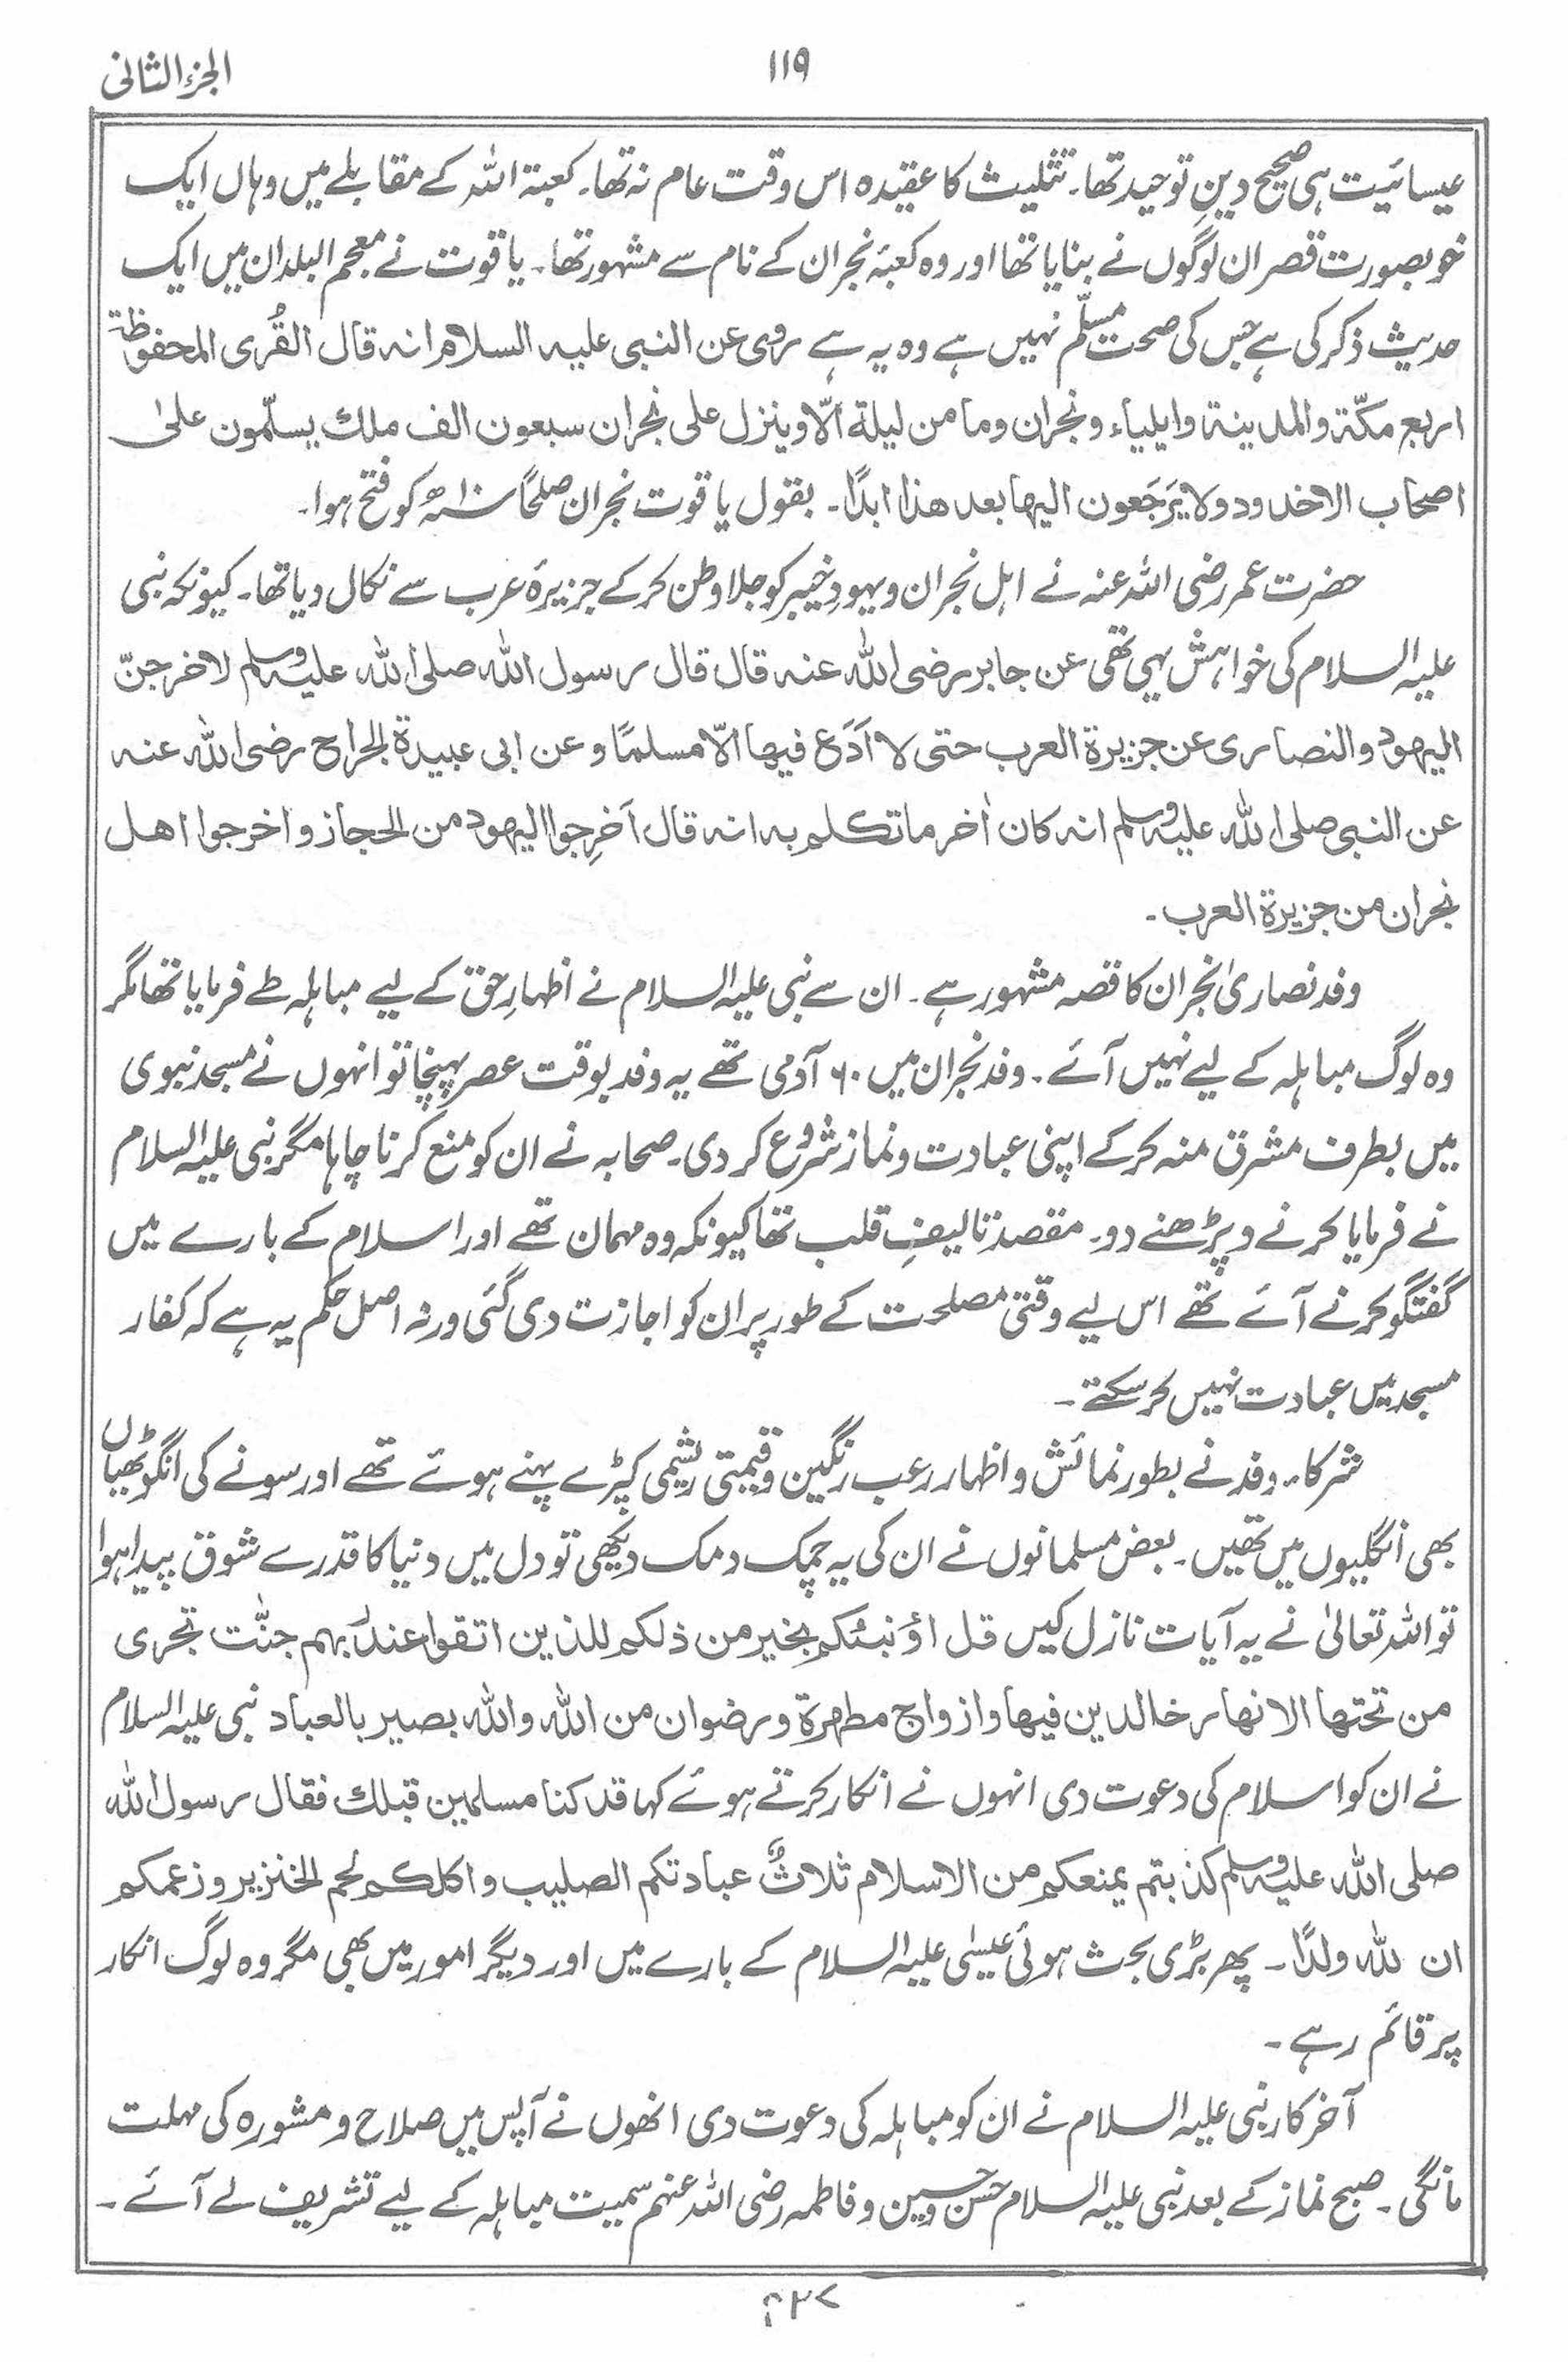 الجزء الثانی
۱۱۹
عیسائیت ہی صحیح دینِ توحید تھا۔ تثلیث کا عقیدہ اس وقت عام نہ تھا۔ کعبۃ اللہ کے مقابلے میں وہاں ایک
خوبصورت قصر ان لوگوں نے بنایا تھا اور وہ کعبۂ نجران کے نام سے مشہور تھا۔ یاقوت نے معجم البلدان میں ایک
حدیث ذکر کی ہے جس کی صحت مسلّم نہیں ہے وہ یہ ہے روی عن النبی علیہ السلام انہ قال القُری المحفوظۃ
اربع مکّۃ والمدینۃ وایلیاء ونجران وما من لیلۃ الّا وینزل علی نجران سبعون الف ملك یسلّمون علیٰ
اصحاب الاخدود ولا یَرجَعون الیہا بعد ھذا ابدًا۔ بقول یاقوت نجران صلحًا سنہ ۱۰ھ کو فتح ہوا۔
حضرت عمر رضی اللہ عنہ نے اہل نجران و یہودِ خیبر کو جلاوطن کرکے جزیرۂ عرب سے نکال دیا تھا۔ کیونکہ نبی
علیہ السلام کی خواہش یہی تھی عن جابر رضی اللہ عنہ قال قال رسول اللہ صلی اللہ علیہ وسلم لاخرجنّ
الیھود والنصاری عن جزیرۃ العرب حتی لا اَدَع فیھا الّا مسلمًا و عن ابی عبیدۃ الجراح رضی اللہ عنہ
عن النبی صلی اللہ علیہ وسلم انہ کان اٰخر ما تکلم بہ انہ قال اَخرِجوا الیھود من الحجاز واخرجوا اھل
نجران من جزیرۃ العرب۔
وفد نصاریٰ نجران کا قصہ مشہور ہے۔ ان سے نبی علیہ السلام نے اظہارِ حق کے لیے مباہلہ طے فرمایا تھا مگر
وہ لوگ مباہلہ کے لیے نہیں آئے۔ وفد نجران میں ۶۰ آدمی تھے یہ وفد بوقت عصر پہنچا تو انہوں نے مسجد نبوی
میں بطرف مشرق منہ کرکے اپنی عبادت و نماز شروع کر دی۔ صحابہ نے ان کو منع کرنا چاہا مگر نبی علیہ السلام
نے فرمایا کرنے و پڑھنے دو۔ مقصد تالیفِ قلب تھا کیونکہ وہ مہمان تھے اور اسلام کے بارے میں
گفتگو کرنے آئے تھے اس لیے وقتی مصلحت کے طور پر ان کو اجازت دی گئی ورنہ اصل حکم یہ ہے کہ کفار
مسجد میں عبادت نہیں کر سکتے۔
شرکاء وفد نے بطور نمائش و اظہار رعب رنگین و قیمتی ریشمی کپڑے پہنے ہوئے تھے اور سونے کی انگوٹھیاں
بھی انگلیوں میں تھیں۔ بعض مسلمانوں نے ان کی یہ چمک دمک دیکھی تو دل میں دنیا کا قدرے شوق پیدا ہوا
تو اللہ تعالیٰ نے یہ آیات نازل کیں قل اؤنبئکم بخیر من ذلکم للذین اتقوا عند ربہم جنّٰت تجری
من تحتھا الانھار خالدین فیھا وازواج مطہرۃ ورضوان من اللہ واللہ بصیر بالعباد نبی علیہ السلام
نے ان کو اسلام کی دعوت دی انہوں نے انکار کرتے ہوئے کہا قد کنا مسلمین قبلك فقال رسول اللہ
صلی اللہ علیہ وسلم کذبتم یمنعکم من الاسلام ثلاثٌ عبادتکم الصلیب واکلکم لحم الخنزیر وزعمکم
ان للہ ولدًا۔ پھر بڑی بحث ہوئی عیسٰی علیہ السلام کے بارے میں اور دیگر امور میں بھی مگر وہ لوگ انکار
پر قائم رہے۔
آخر کار نبی علیہ السلام نے ان کو مباہلہ کی دعوت دی انھوں نے آپس میں صلاح و مشورہ کی مہلت
مانگی۔ صبح نماز کے بعد نبی علیہ السلام حسن و حسین و فاطمہ رضی اللہ عنہم سمیت مباہلہ کے لیے تشریف لے آئے۔